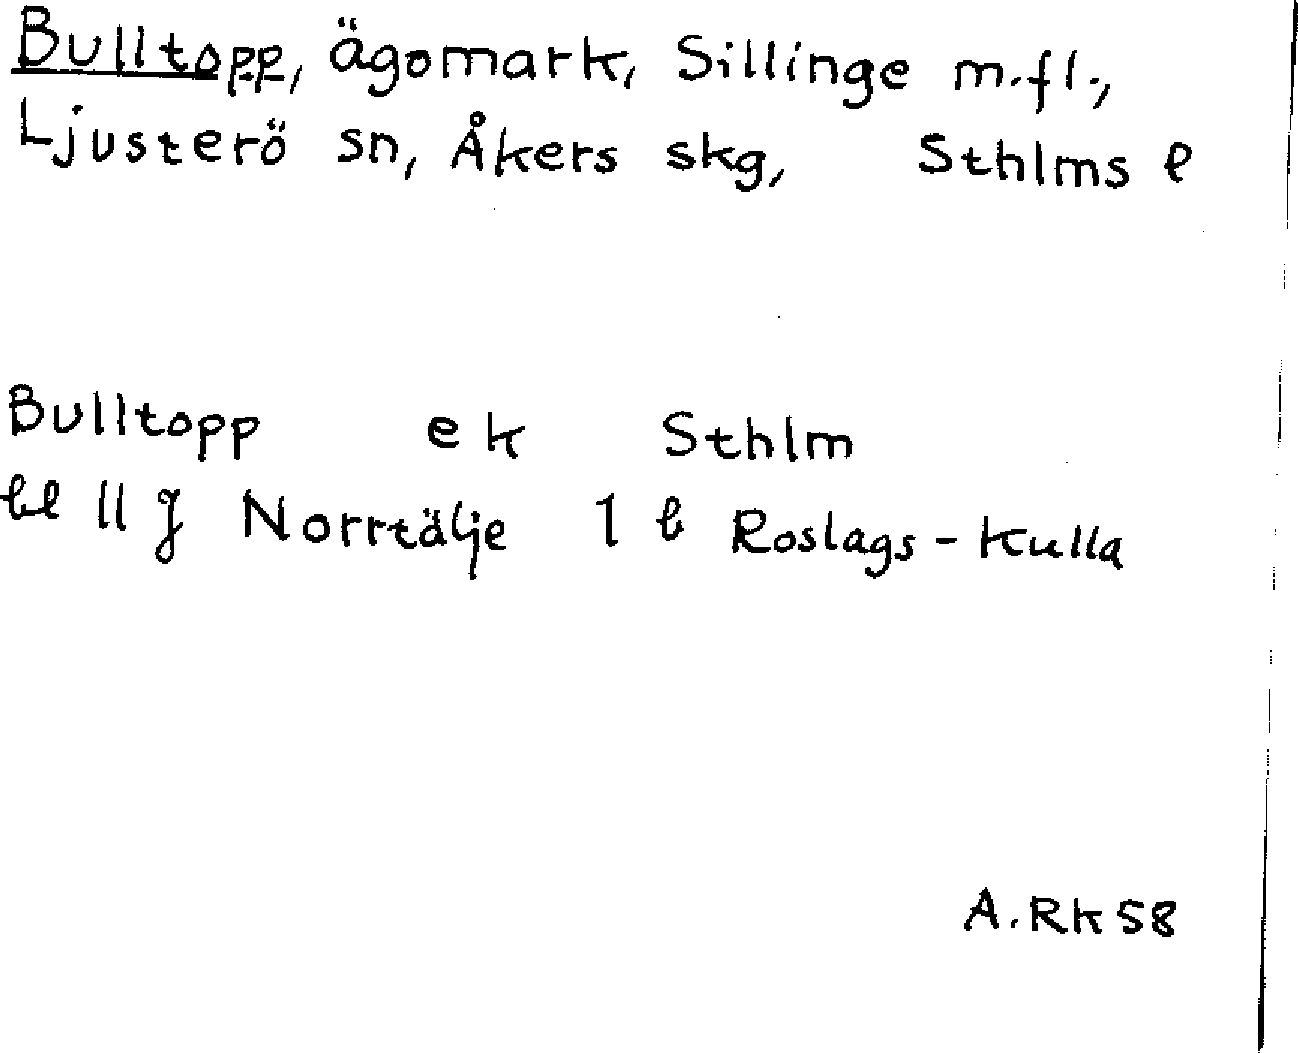 Bulltopp, ägomark, Sillinge m.fl.,
Ljusterö sn, Åkers skg, Sthlms l
Bulltopp ek Sthlm
bl 11 J Norrtälje 1 b Roslags-Kulla
A.RK58